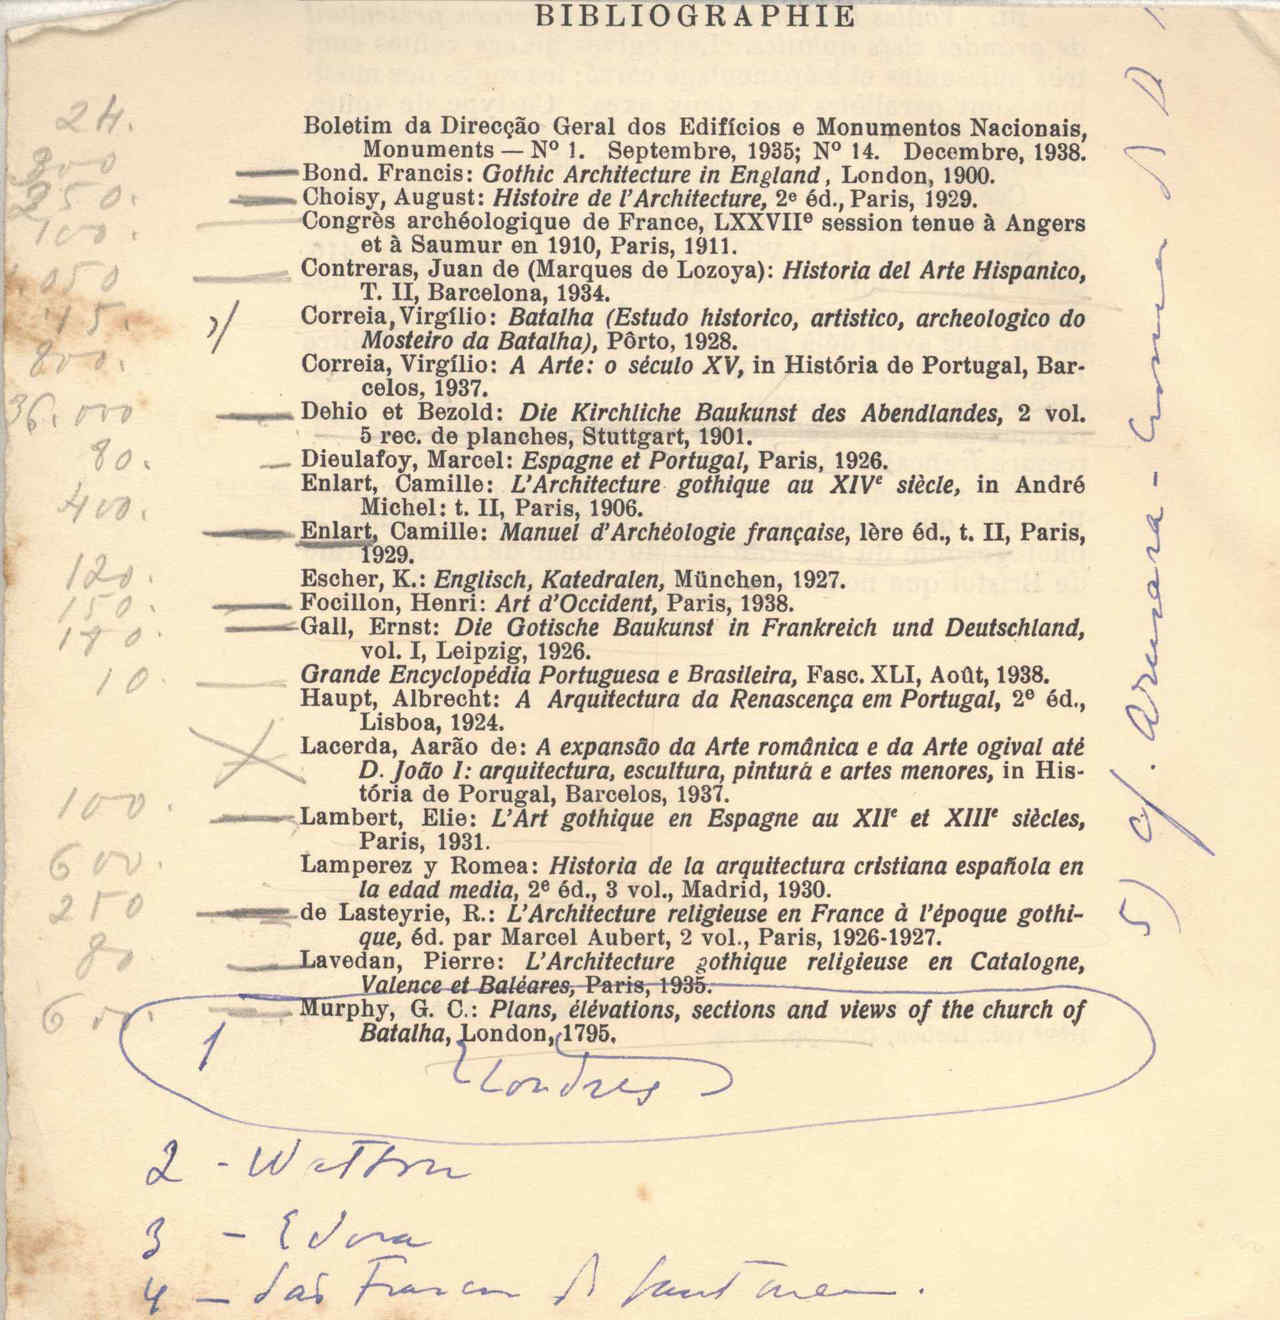 BIBLIOGRAPHIE
24.
Boletim da Direcção Geral dos Edifícios e Monumentos Nacionais,
Monuments — Nº 1. Septembre, 1935; Nº 14. Decembre, 1938.
800
Bond. Francis: Gothic Architecture in England, London, 1900.
250.
Choisy, August: Histoire de l'Architecture, 2e éd., Paris, 1929.
100.
Congrès archéologique de France, LXXVIIe session tenue à Angers
et à Saumur en 1910, Paris, 1911.
050
Contreras, Juan de (Marques de Lozoya): Historia del Arte Hispanico,
T. II, Barcelona, 1934.
45.
Correia, Virgílio: Batalha (Estudo historico, artistico, archeologico do
Mosteiro da Batalha), Pôrto, 1928.
800.
Correia, Virgílio: A Arte: o século XV, in História de Portugal, Bar-
celos, 1937.
36.000
Dehio et Bezold: Die Kirchliche Baukunst des Abendlandes, 2 vol.
5 rec. de planches, Stuttgart, 1901.
80.
Dieulafoy, Marcel: Espagne et Portugal, Paris, 1926.
Enlart, Camille: L'Architecture gothique au XIVe siècle, in André
Michel: t. II, Paris, 1906.
400.
Enlart, Camille: Manuel d'Archéologie française, lère éd., t. II, Paris,
1929.
120.
Escher, K.: Englisch, Katedralen, München, 1927.
150.
Focillon, Henri: Art d'Occident, Paris, 1938.
Gall, Ernst: Die Gotische Baukunst in Frankreich und Deutschland,
vol. I, Leipzig, 1926.
10.
Grande Encyclopédia Portuguesa e Brasileira, Fasc. XLI, Août, 1938.
Haupt, Albrecht: A Arquitectura da Renascença em Portugal, 2e éd.,
Lisboa, 1924.
Lacerda, Aarão de: A expansão da Arte românica e da Arte ogival até
D. João I: arquitectura, escultura, pintura e artes menores, in His-
tória de Porugal, Barcelos, 1937.
100.
Lambert, Elie: L'Art gothique en Espagne au XIIe et XIIIe siècles,
Paris, 1931.
600.
Lamperez y Romea: Historia de la arquitectura cristiana española en
la edad media, 2e éd., 3 vol., Madrid, 1930.
250
de Lasteyrie, R.: L'Architecture religieuse en France à l'époque gothi-
que, éd. par Marcel Aubert, 2 vol., Paris, 1926-1927.
80
Lavedan, Pierre: L'Architecture gothique religieuse en Catalogne,
Valence et Baléares, Paris, 1935.
600.
Murphy, G. C.: Plans, élévations, sections and views of the church of
Batalha, London, 1795.
1
Londres
2 - Watson
3 - Evora
4 - São
5) cf.